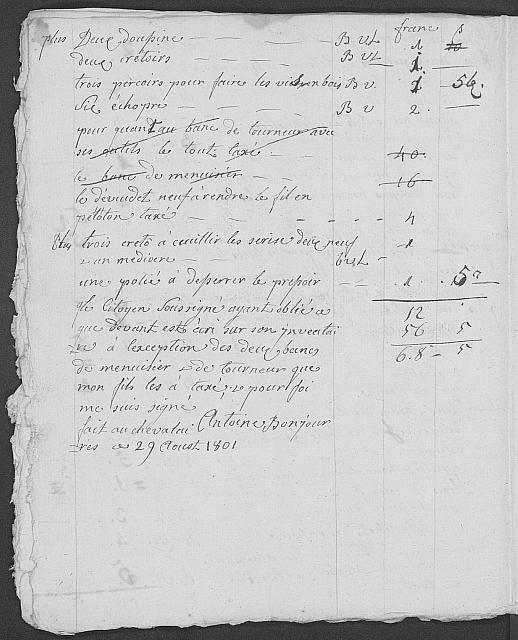 franc ß
plus Deux doussine — — — B v L 1 10
deux cretoirs — — — B v L 1 —
trois percoirs pour faire les vis en bois B v. 1 5ß.
Six échopre — — — B v 2. —
pour quant au banc de tourneur avec
ses outils le tout taxé — 40.
le banc de menuisier — 16
le dévudet neuf à rendre le fil en
peloton taxé — — — — — 4
Plus trois creto à cuillir les serise deux neuf — 1
& un médiocre — — bvL —
une polié à desserrer le pressoir — — 1. 5
Je Citoyen Soussigné ayant oblié ce 12
que devant est écri sur son inventai 56 5
=re à lexception des deux bancs 68 — 5
de menuisier & de tourneur que
mon fils les a taxé, & pour foi
me suis signé
fait au chevalai Antoine Bonjour
=res ce 29 Aoust 1801